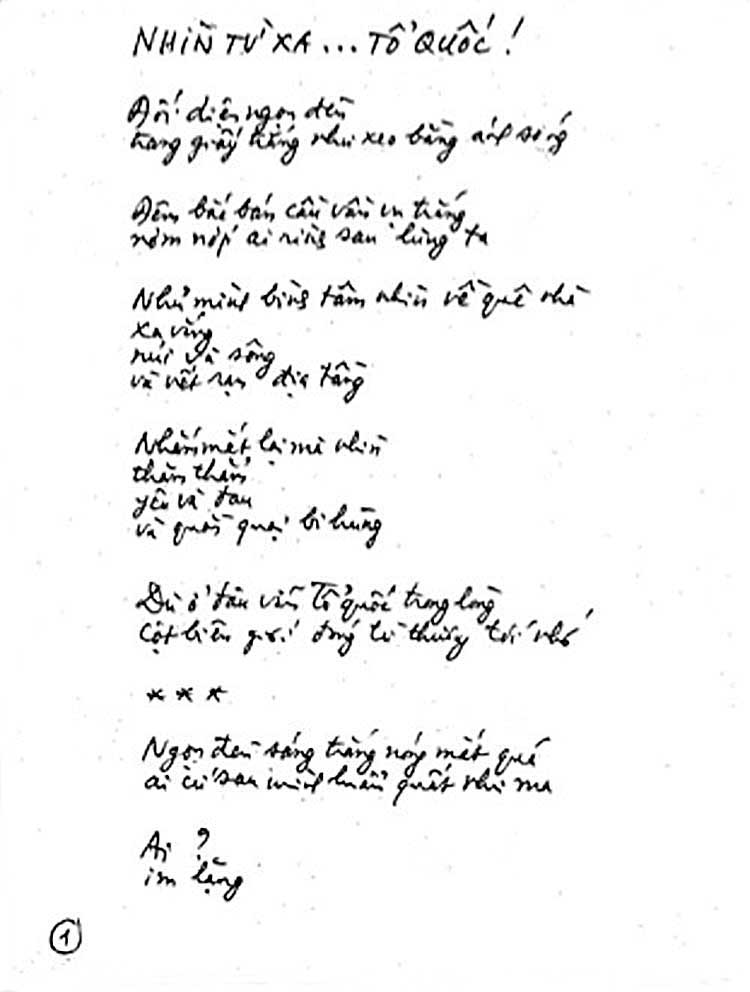 NHÌN TỪ XA... TỔ QUỐC!
Đối diện ngọn đèn
trang giấy trắng như xeo bằng ánh sáng
Đêm bắc bán cầu vần vụ trắng
nơm nớp ai rình sau lưng ta
Nhủ mình bình tâm nhìn về quê nhà
xa vắng
núi và sông
và vết rạn địa tầng
Nhắm mắt lại mà nhìn
thăm thẳm
yêu và đau
và quằn quại bi hùng
Dù ở đâu vẫn Tổ quốc trong lòng
Cột biên giới đóng từ thương tới nhớ
***
Ngọn đèn sáng trắng nóng mắt quá
ai cứ sau mình lẩn quất như ma
Ai ?
im lặng
1